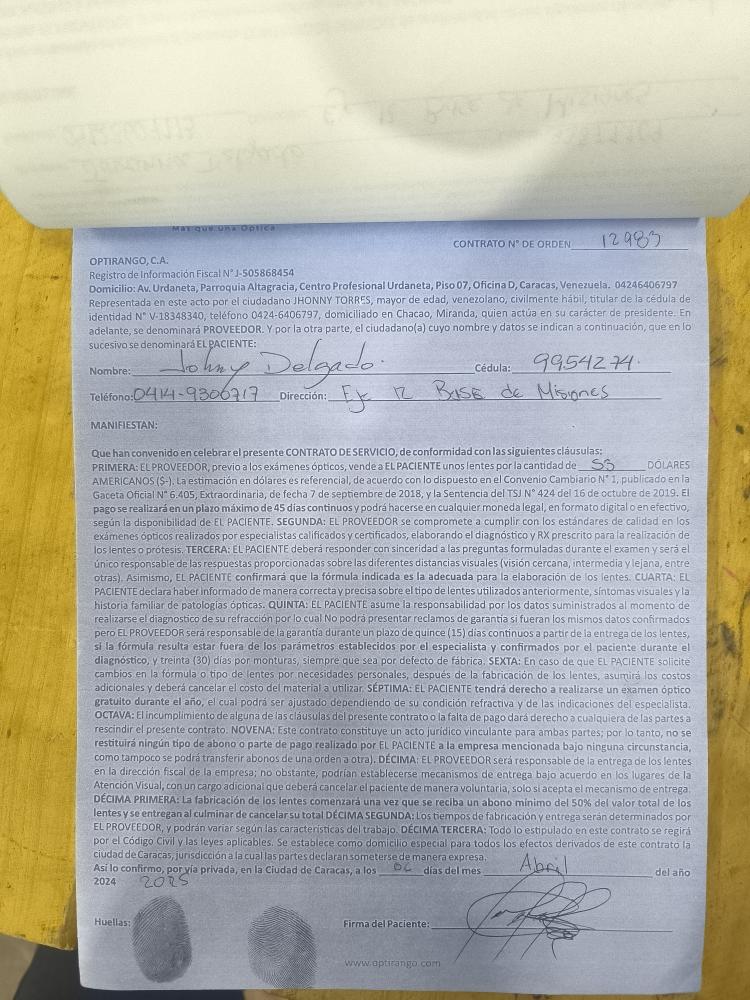 Más que una Óptica
CONTRATO N° DE ORDEN 12983
OPTIRANGO, C.A.
Registro de Información Fiscal N° J-505868454
Domicilio: Av. Urdaneta, Parroquia Altagracia, Centro Profesional Urdaneta, Piso 07, Oficina D, Caracas, Venezuela. 04246406797
Representada en este acto por el ciudadano JHONNY TORRES, mayor de edad, venezolano, civilmente hábil, titular de la cédula de
identidad N° V-18348340, teléfono 0424-6406797, domiciliado en Chacao, Miranda, quien actúa en su carácter de presidente. En
adelante, se denominará PROVEEDOR. Y por la otra parte, el ciudadano(a) cuyo nombre y datos se indican a continuación, que en lo
sucesivo se denominará EL PACIENTE:
Nombre: Johny Delgado. Cédula: 9954274.
Teléfono: 0414-9306717 Dirección: Eje 12 Base de Misiones
MANIFIESTAN:
Que han convenido en celebrar el presente CONTRATO DE SERVICIO, de conformidad con las siguientes cláusulas:
PRIMERA: EL PROVEEDOR, previo a los exámenes ópticos, vende a EL PACIENTE unos lentes por la cantidad de 55 DÓLARES
AMERICANOS ($-). La estimación en dólares es referencial, de acuerdo con lo dispuesto en el Convenio Cambiario N° 1, publicado en la
Gaceta Oficial N° 6.405, Extraordinaria, de fecha 7 de septiembre de 2018, y la Sentencia del TSJ N° 424 del 16 de octubre de 2019. El
pago se realizará en un plazo máximo de 45 días continuos y podrá hacerse en cualquier moneda legal, en formato digital o en efectivo,
según la disponibilidad de EL PACIENTE. SEGUNDA: EL PROVEEDOR se compromete a cumplir con los estándares de calidad en los
exámenes ópticos realizados por especialistas calificados y certificados, elaborando el diagnóstico y RX prescrito para la realización de
los lentes o prótesis. TERCERA: EL PACIENTE deberá responder con sinceridad a las preguntas formuladas durante el examen y será el
único responsable de las respuestas proporcionadas sobre las diferentes distancias visuales (visión cercana, intermedia y lejana, entre
otras). Asimismo, EL PACIENTE confirmará que la fórmula indicada es la adecuada para la elaboración de los lentes. CUARTA: EL
PACIENTE declara haber informado de manera correcta y precisa sobre el tipo de lentes utilizados anteriormente, síntomas visuales y la
historia familiar de patologías ópticas. QUINTA: EL PACIENTE asume la responsabilidad por los datos suministrados al momento de
realizarse el diagnostico de su refracción por lo cual No podrá presentar reclamos de garantía si fueran los mismos datos confirmados
pero EL PROVEEDOR será responsable de la garantía durante un plazo de quince (15) días continuos a partir de la entrega de los lentes,
si la fórmula resulta estar fuera de los parámetros establecidos por el especialista y confirmados por el paciente durante el
diagnóstico, y treinta (30) días por monturas, siempre que sea por defecto de fábrica. SEXTA: En caso de que EL PACIENTE solicite
cambios en la fórmula o tipo de lentes por necesidades personales, después de la fabricación de los lentes, asumirá los costos
adicionales y deberá cancelar el costo del material a utilizar. SÉPTIMA: EL PACIENTE tendrá derecho a realizarse un examen óptico
gratuito durante el año, el cual podrá ser ajustado dependiendo de su condición refractiva y de las indicaciones del especialista.
OCTAVA: El incumplimiento de alguna de las cláusulas del presente contrato o la falta de pago dará derecho a cualquiera de las partes a
rescindir el presente contrato. NOVENA: Este contrato constituye un acto jurídico vinculante para ambas partes; por lo tanto, no se
restituirá ningún tipo de abono o parte de pago realizado por EL PACIENTE a la empresa mencionada bajo ninguna circunstancia,
como tampoco se podrá transferir abonos de una orden a otra). DÉCIMA: EL PROVEEDOR será responsable de la entrega de los lentes
en la dirección fiscal de la empresa; no obstante, podrían establecerse mecanismos de entrega bajo acuerdo en los lugares de la
Atención Visual, con un cargo adicional que deberá cancelar el paciente de manera voluntaria, solo si acepta el mecanismo de entrega.
DÉCIMA PRIMERA: La fabricación de los lentes comenzará una vez que se reciba un abono mínimo del 50% del valor total de los
lentes y se entregan al culminar de cancelar su total DÉCIMA SEGUNDA: Los tiempos de fabricación y entrega serán determinados por
EL PROVEEDOR, y podrán variar según las características del trabajo. DÉCIMA TERCERA: Todo lo estipulado en este contrato se regirá
por el Código Civil y las leyes aplicables. Se establece como domicilio especial para todos los efectos derivados de este contrato la
ciudad de Caracas, jurisdicción a la cual las partes declaran someterse de manera expresa.
Así lo confirmo, por vía privada, en la Ciudad de Caracas, a los 02 días del mes Abril del año
2024 2025
Huellas: Firma del Paciente:
www.optirango.com